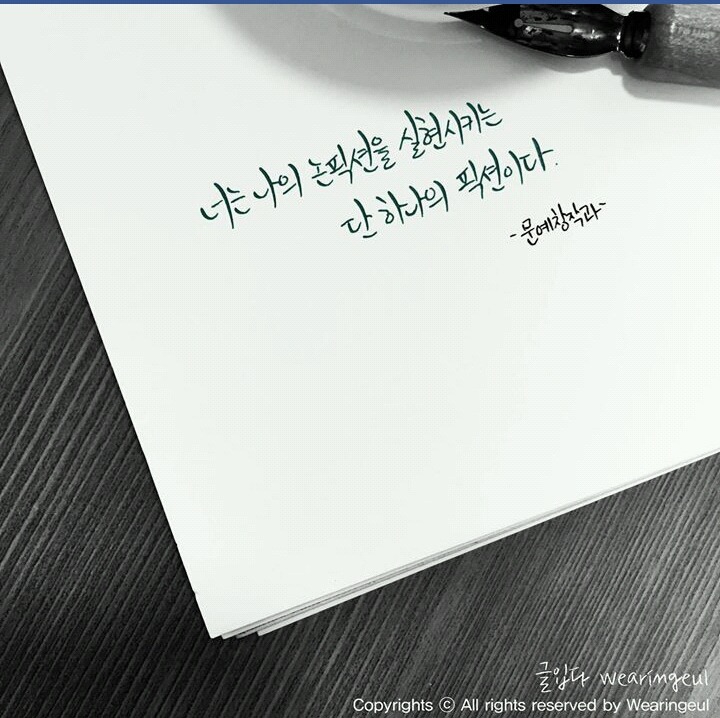 너는 나의 논픽션을 실현시키는
단 하나의 픽션이다.
-문예창작과-
글입다 wearingeul
Copyrights ⓒ All rights reserved by Wearingeul